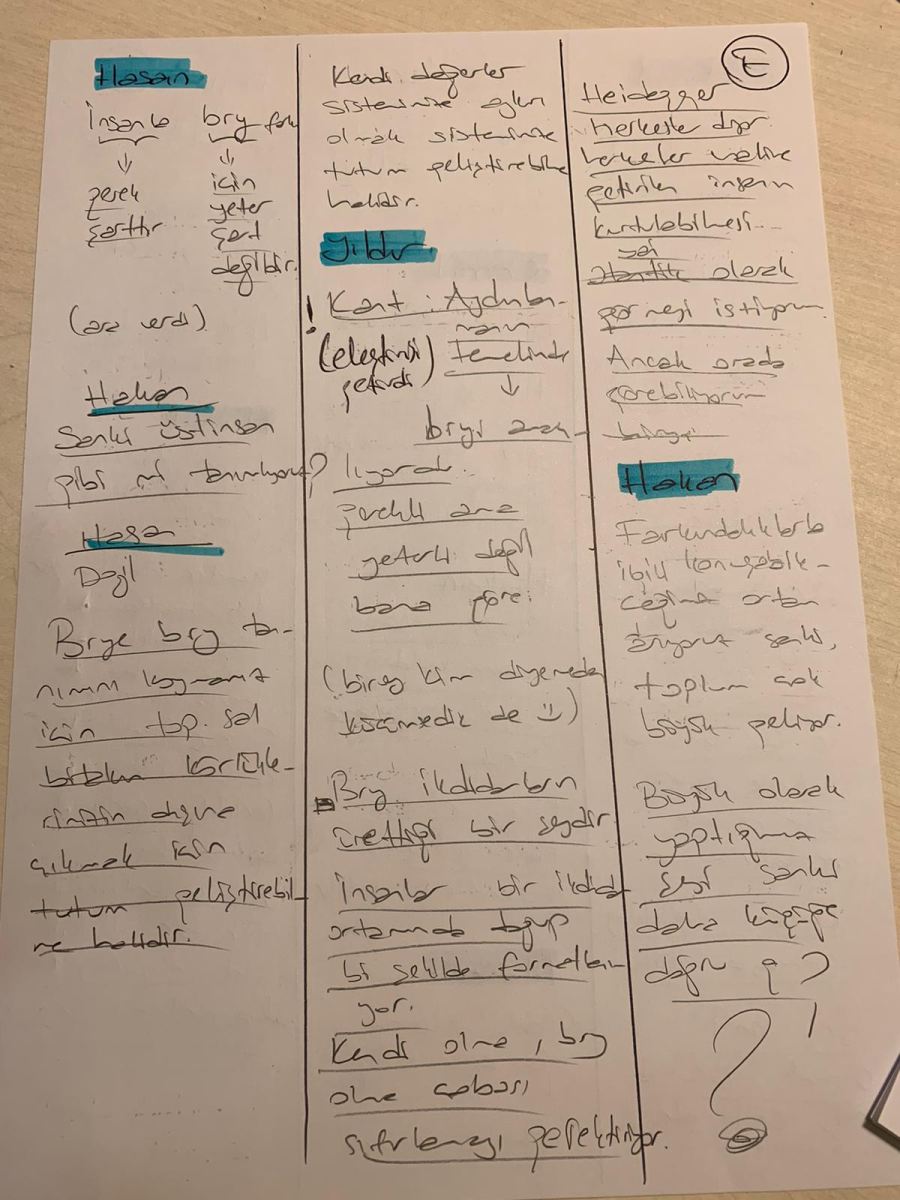 Hasan
İnsanla bry farkı
↓ ↓
gerek için
şarttır yeter
şart
değildir.
(ara verdi)
Hakan
Sanki üstinsan
gibi mi tanımlıyoruz?
Hasan
Değil
Brye bry ta-
nımını koymamız
için top. sal
körlükle-
rimizin dışına
çıkmak için
tutum geliştirebil-
me halidir.
Kendi değerler
sistemine aykırı
olmak sistemine
tutum geliştirebilme
halidir.
Yıldır
! Kant: Aydınlan-
manın
(eleştirisi temelinde
getirdi) ↓
bryi
gerekli ama
yeterli değil
bana göre.
(birey kim diyemeden
küçümsedik de :))
Bry iktidarların
ürettiği bir şeydir
İnsanlar bir iktidar
ortamında doğup
bi şekilde formatlanı-
yor.
Kendi olma, bry
olma çabası
sıfırlamayı gerektiriyor.
E
Heidegger
herkesler haline
getirilen insanın
kurtulabilmesi...
olarak
görmeyi istiyorum
Ancak orada
görebiliyorum
Hakan
Farkındalıklarla
ilgili konuşabil-
ceğimiz ortam
arıyoruz sanki,
toplum çok
büyük geliyor.
Büyük olarak
yaptığımız
şeyi sanki
daha küçüğe
doğru ?
?